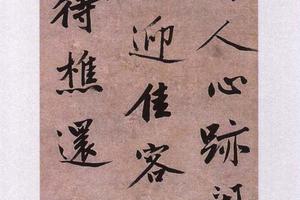 人心跡
迎佳客
待樵還